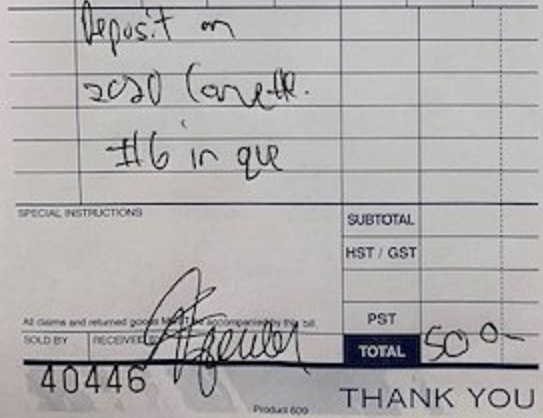 Deposit on
2020 Corvette.
#6 in que
SPECIAL INSTRUCTIONS
SUBTOTAL
HST / GST
All claims and returned goods MUST be accompanied by this bill.
PST
SOLD BY RECEIVED BY
TOTAL 500-
40446
Product 609
THANK YOU